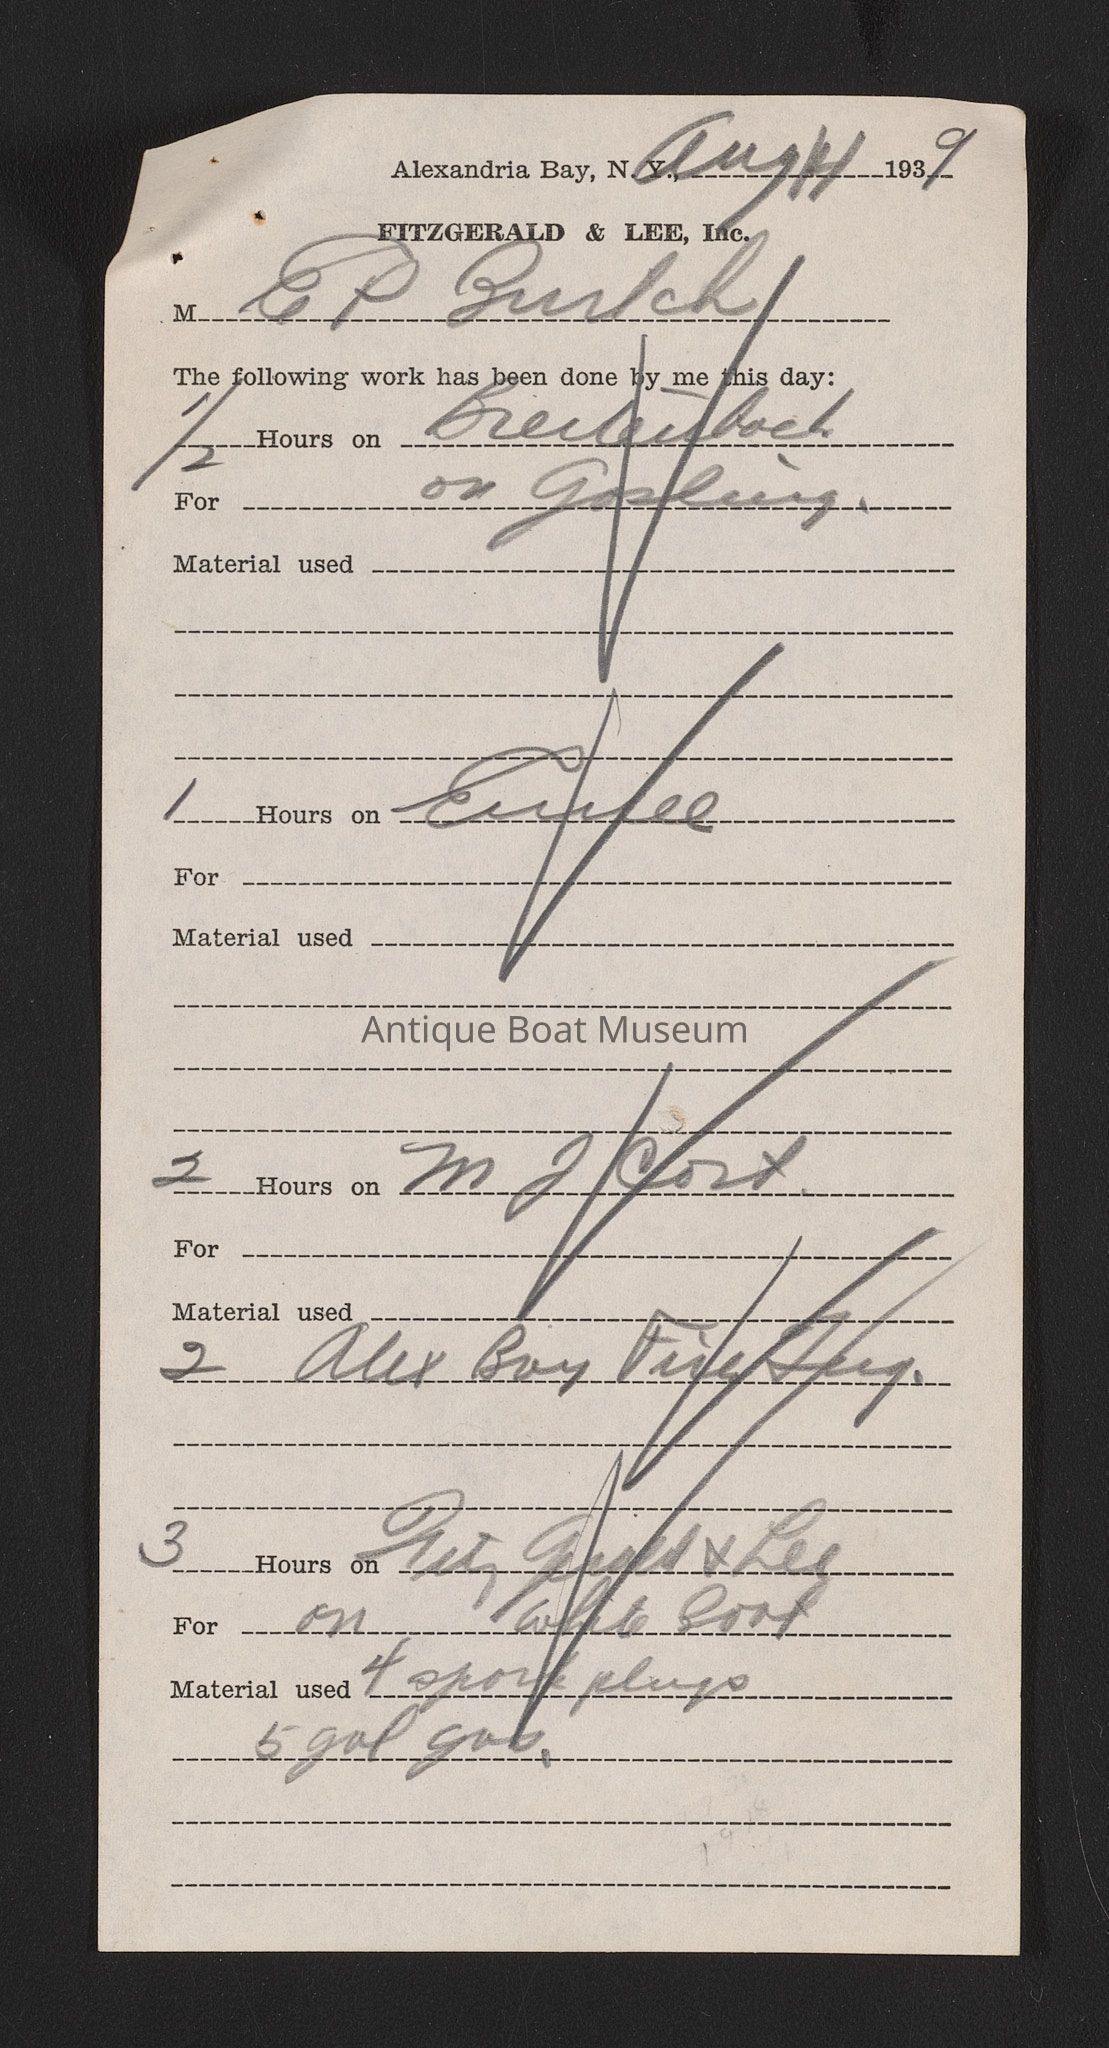 Alexandria Bay, N. Y., Aug 1939
FITZGERALD & LEE, Inc.
M E P Burtch
The following work has been done by me this day:
1/2 Hours on Breitenbach
For on Gosling.
Material used
1 Hours on
For
Material used
Antique Boat Museum
2 Hours on M J Cort.
For
Material used
2 Alex Bay Fire
3 Hours on Fitz Gerald & Lee
For on white boat
Material used 4 spark plugs
5 gal gas.